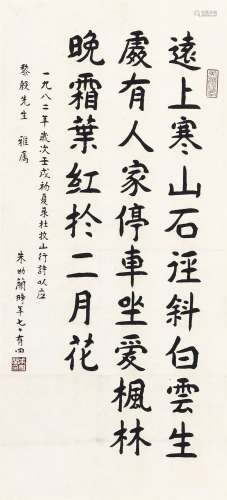 遠上寒山石徑斜白雲生
處有人家停車坐愛楓林
晚霜葉紅於二月花
一九八二年歲次壬戌初夏录杜牧山行詩以应
先生 雅屬
朱幼蘭時年七十有四